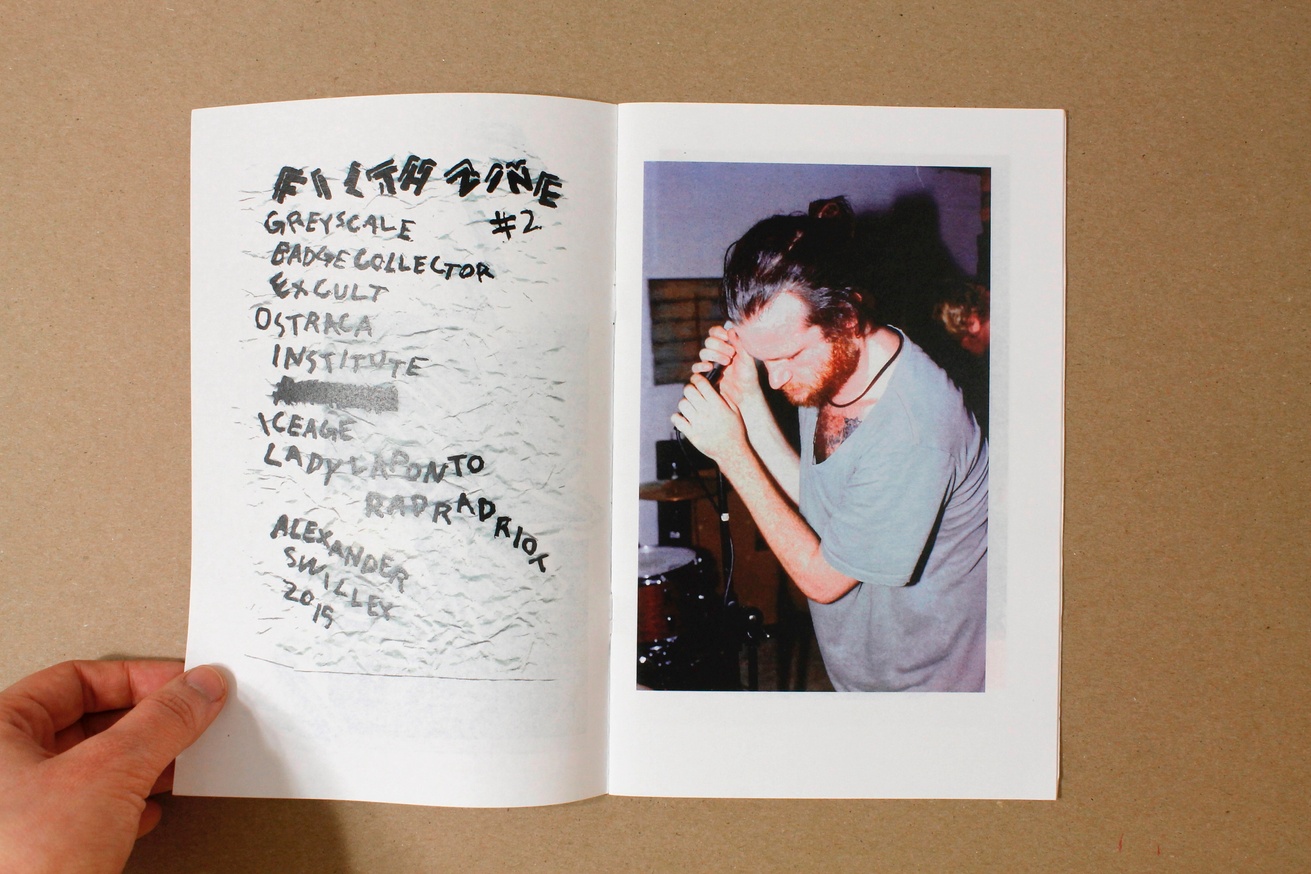 FILTH ZINE
#2
GREYSCALE
BADGE COLLECTOR
EX CULT
OSTRACA
INSTITUTE
ICEAGE
LADY LAPONTO
RADRADRIOT
ALEXANDER
SWILLEX
2015